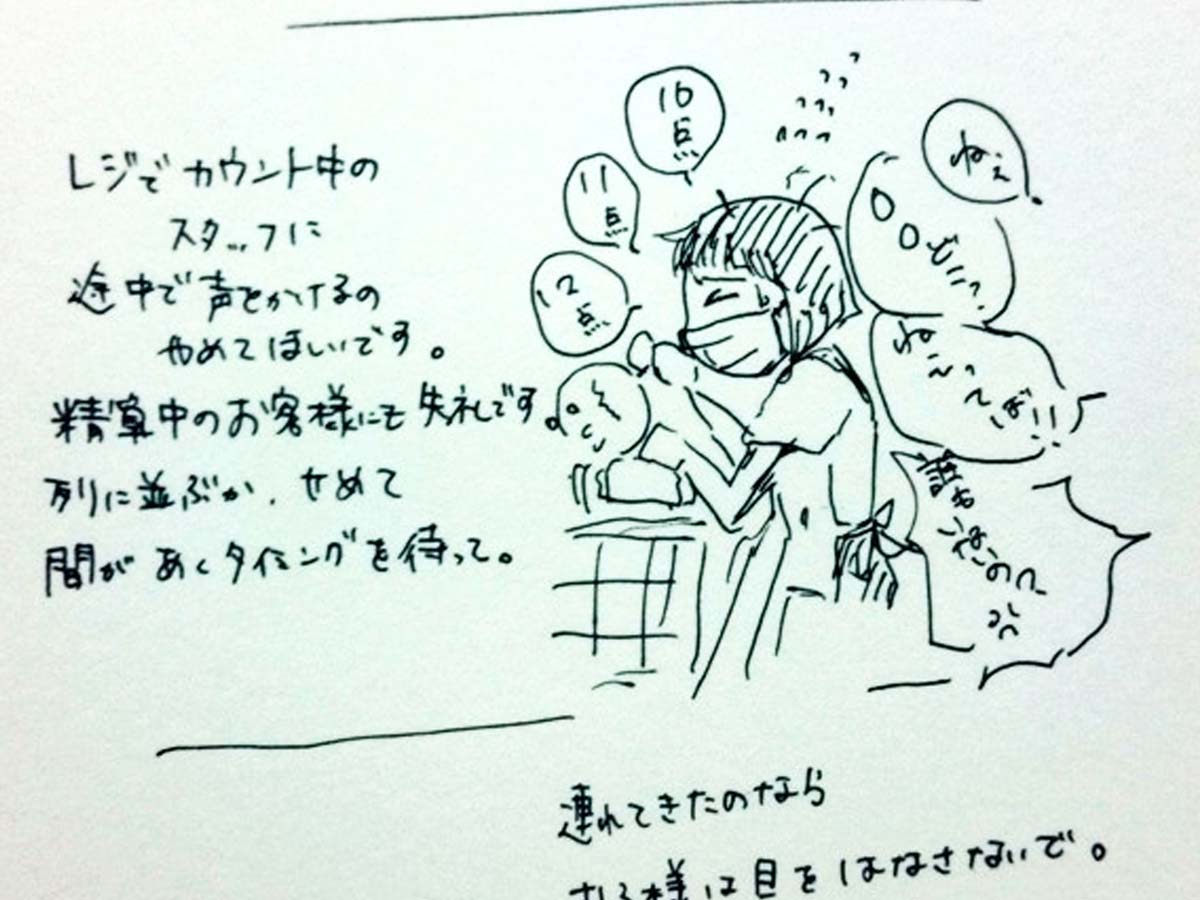 レジでカウント中の
スタッフに
途中で声をかけるの
やめてほしいです。
精算中のお客様にも失礼です。
列に並ぶか、せめて
間があくタイミングを待って。
10点
11点
12点
ねぇ
○○どこっ?
ねーってば!!
誰も
連れてきたのなら
様は目をはなさないで。